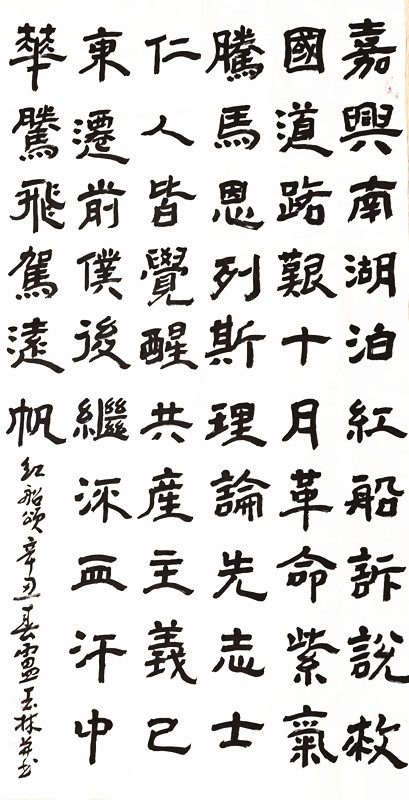 嘉興南湖泊紅船訴說救
國道路艱十月革命紫氣
騰馬恩列斯理論先志士
仁人皆覺醒共産主義已
東遷前僕後繼流血汗中
華騰飛駕遠帆
红船颂辛丑春雷玉林并书